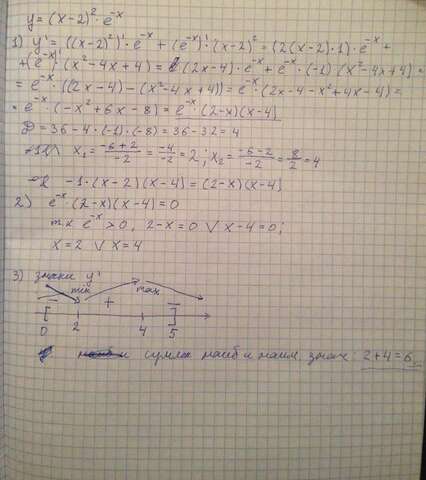 y = (x-2)² · e⁻ˣ
1) y' = ((x-2)²)' · e⁻ˣ + (e⁻ˣ)' · (x-2)² = (2(x-2)·1) · e⁻ˣ +
+ (e⁻ˣ)' · (x²-4x+4) = (2x-4) · e⁻ˣ + e⁻ˣ · (-1) · (x²-4x+4) =
= e⁻ˣ · ((2x-4) - (x²-4x+4)) = e⁻ˣ · (2x-4-x²+4x-4) =
= e⁻ˣ · (-x²+6x-8) = e⁻ˣ · (2-x)(x-4)
D = 36-4·(-1)·(-8) = 36-32 = 4
x₁ = -6+2/-2 = -4/-2 = 2; x₂ = -6-2/-2 = 8/2 = 4
-1·(x-2)(x-4) = (2-x)(x-4)
2) e⁻ˣ · (2-x)(x-4) = 0
т.к e⁻ˣ > 0, 2-x=0 ∨ x-4=0;
x=2 ∨ x=4
3) знаки y'
min max
- + -
[ ]
0 2 4 5
сумма наиб и наим. знач: 2+4=6